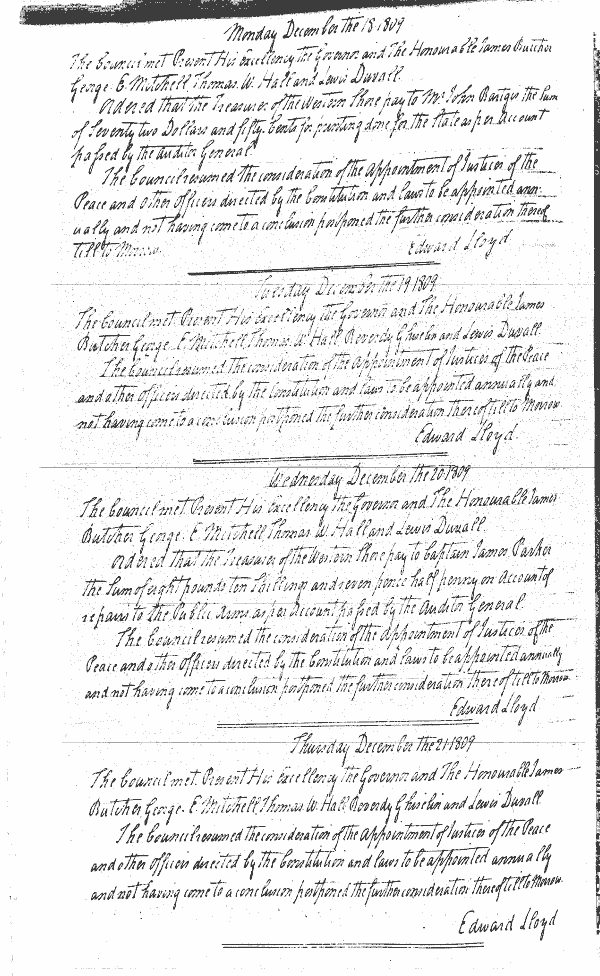 Monday December the 18 1809
The Council met. Present His Excellency the Governor and The Honourable James Butcher
George. E. Mitchell Thomas. W. Hall and Lewis Duvall.
Ordered that the Treasurer of the Western Shore pay to Mr John the Sum
of Seventy two Dollars and fifty Cents for printing done for the State as per Account
passed by the Auditor General.
The Council resumed the consideration of the Appointment of Justices of the
Peace and other Officers directed by the Constitution and Laws to be appointed ann-
ually and not having come to a conclusion postponed the further consideration thereof
till to Morrow.
Edward Lloyd
Tuesday December the 19 1809
The Council met. Present His Excellency the Governor and The Honourable James
Butcher George. E. Mitchell Thomas. W. Hall Reverdy Ghiselin and Lewis Duvall.
The Council resumed the consideration of the Appointment of Justices of the Peace
and other Officers directed by the Constitution and Laws to be appointed annually and
not having come to a conclusion postponed the further consideration thereof till to Morrow.
Edward Lloyd.
Wednesday December the 20 1809
The Council met. Present His Excellency the Governor and The Honourable James
Butcher George. E. Mitchell Thomas W. Hall and Lewis Duvall.
Ordered that the Treasurer of the Western Shore pay to Captain James Parker
the Sum of eight pounds ten Shillings and seven pence half penny on Account of
repairs to the Public Arms as per Account passed by the Auditor General.
The Council resumed the consideration of the Appointment of Justices of the
Peace and other Officers directed by the Constitution and Laws to be appointed annually
and not having come to a conclusion postponed the further consideration thereof till to Morrow
Edward Lloyd
Thursday December the 21 1809
The Council met. Present His Excellency the Governor and The Honourable James
Butcher George. E. Mitchell Thomas W. Hall Reverdy Ghiselin and Lewis Duvall.
The Council resumed the consideration of the Appointment of Justices of the Peace
and other Officers directed by the Constitution and Laws to be appointed annually
and not having come to a conclusion postponed the further consideration thereof till to Morrow.
Edward Lloyd